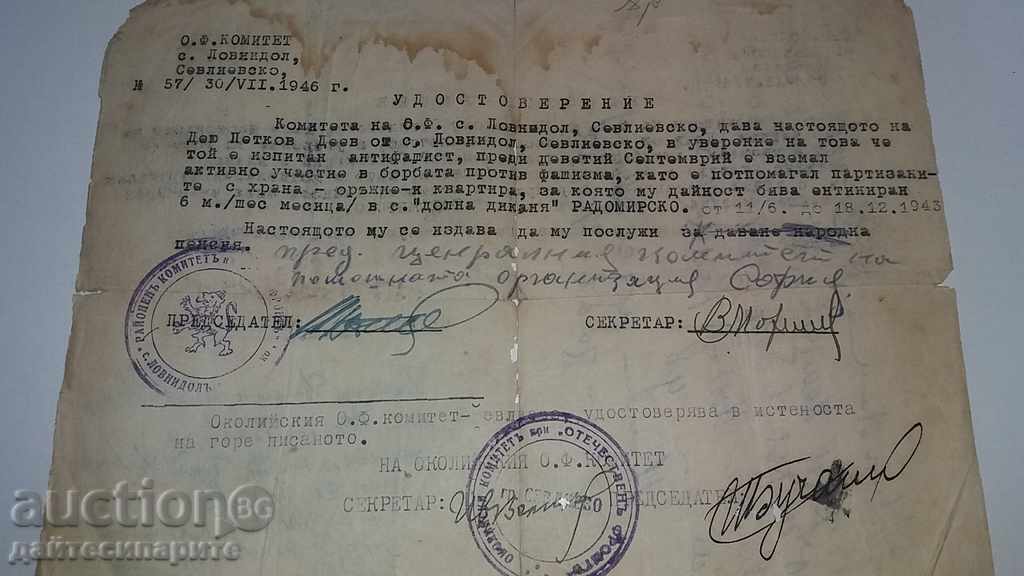 О.Ф.КОМИТЕТ
с. Ловнидол,
Севлиевско,
№ 57/ 30/VII.1946 г.
У Д О С Т О В Е Р Е Н И Е
Комитета на О.Ф. с. Ловнидол, Севлиевско, дава настоящото на
Дею Петков Деев от с. Ловнидол, Севлиевско, в уверение на това че
той е изпитан антифашист, преди деветий Септемврий е вземал
активно участие в борбата против фашизма, като е потпомагал партизани-
те с храна - оръжие-и квартира, за която му дайност бива ентиниран
6 м./шес месица/ в с."долна диканя" РАДОМИРСКО. от 11/6. до 18.12.1943
Настоящото му се издава да му послужи за даване народна
пенсия. пред централния комитет на
помощната организация София.
РАЙОНЕНЪ КОМИТЕТЪ
с. ЛОВНИДОЛЪ
ПРЕДСЕДАТЕЛ:
СЕКРЕТАР:
Околийския О.Ф.комитет- удостоверява в истеноста
на горе писаното.
НА ОКОЛИЙСКИЯ О.Ф.КОМИТЕТ
СЕКРЕТАР: ПРЕДСЕДАТЕЛ
ОКОЛИЙСКИ КОМИТЕТЪ при "ОТЕЧЕСТВЕНЪ ФРОНТЪ"
auction BG
дайтесипарите